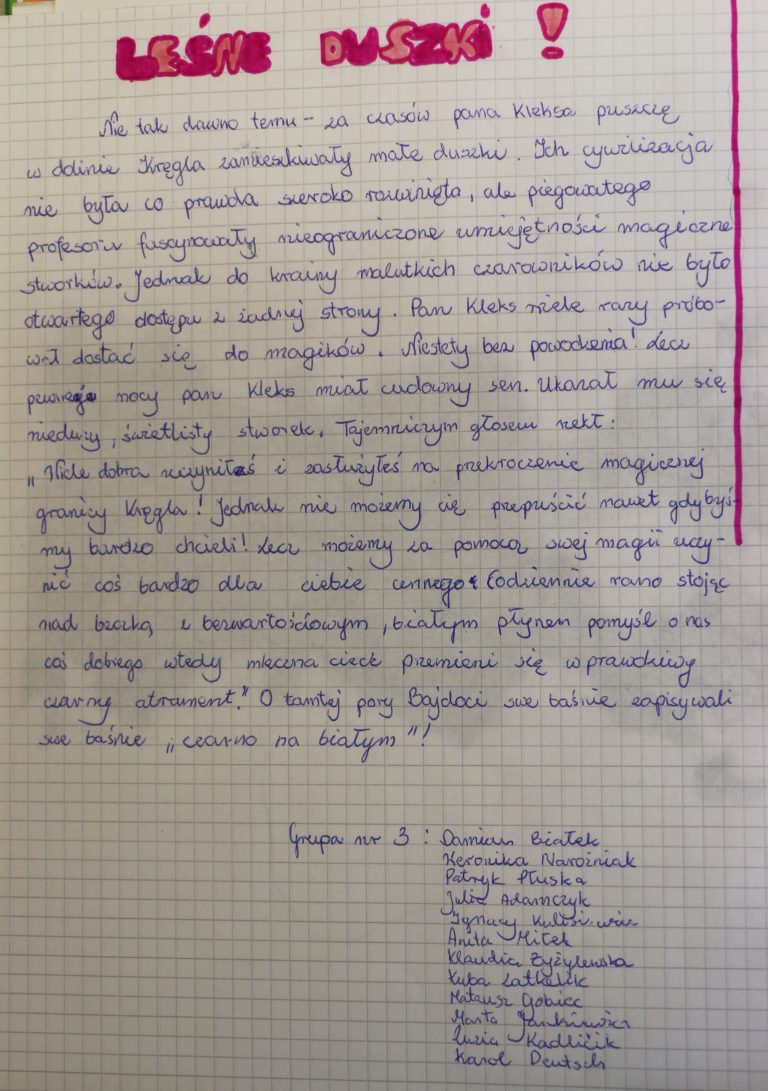 LEŚNE DUSZKI!
Nie tak dawno temu - za czasów pana Kleksa puszczę
w dolinie Kręgla zamieszkiwały małe duszki. Ich cywilizacja
nie była co prawda szeroko rozwinięta, ale piegowatego
profesora fascynowały nieograniczone umiejętności magiczne
stworków. Jednak do krainy malutkich czarowników nie było
otwartego dostępu z żadnej strony. Pan Kleks wiele razy próbo-
wał dostać się do magików. Niestety bez powodzenia! Lecz
pewnego nocy pan Kleks miał cudowny sen. Ukazał mu się
nieduży, świetlisty stworek. Tajemniczym głosem rzekł:
„Wiele dobra uczyniłeś i zasłużyłeś na przekroczenie magicznej
granicy Kręgla! Jednak nie możemy cię przepuścić nawet gdybyś-
my bardzo chcieli! Lecz możemy za pomocą swej magii uczy-
nić coś bardzo dla ciebie cennego. Codziennie rano stojąc
nad beczką z bezwartościowym, białym płynem pomyśl o nas
coś dobrego wtedy mleczna ciecz przemieni się w prawdziwy
czarny atrament." O tamtej pory Bajdoci swe baśnie zapisywali
swe baśnie „czarno na białym"!
Grupa nr 3: Damian Białek
Weronika Narożniak
Patryk Płuska
Julia Adamczyk
Ignacy
Anita Mitek
Klaudia Zyżylewska
Kuba
Mateusz Gobiec
Marta Jankiewicz
Zuzia Kadličik
Karol Deutsch